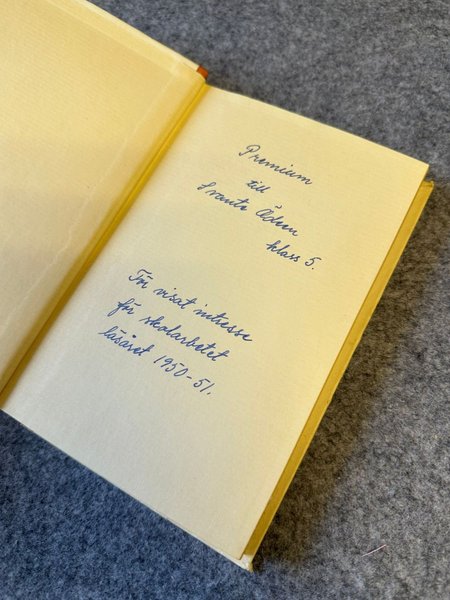 Premium
till
Svante Ödeen
klass 5.
För visat intresse
för skolarbetet
läsåret 1950-51.